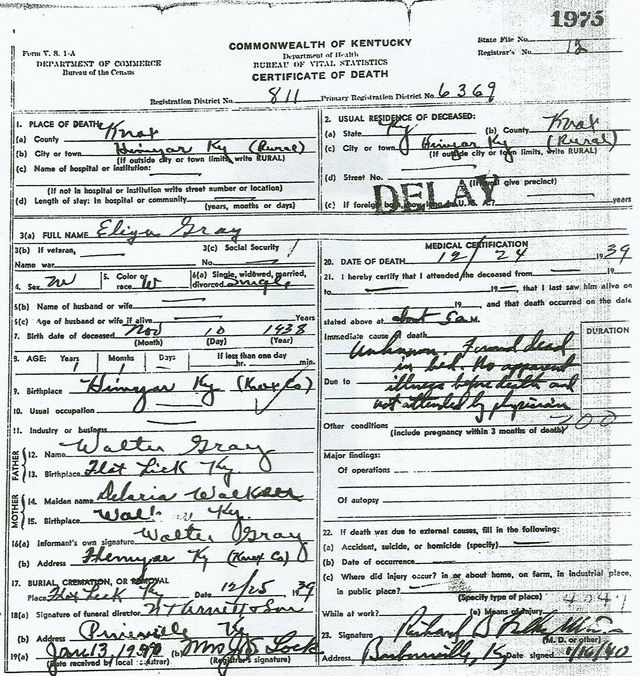 1975
COMMONWEALTH OF KENTUCKY
Form V. S. 1-A
DEPARTMENT OF COMMERCE
Bureau of the Census
Department of Health
BUREAU OF VITAL STATISTICS
CERTIFICATE OF DEATH
State File No.
Registrar's No. 12
Registration District No. 811 Primary Registration District No. 6369
1. PLACE OF DEATH
(a) County Knox
(b) City or town Himyar Ky (Rural)
(If outside city or town limits, write RURAL)
(c) Name of hospital or institution:
(If not in hospital or institution write street number or location)
(d) Length of stay: In hospital or community
(years, months or days)
2. USUAL RESIDENCE OF DECEASED:
(a) State Ky (b) County Knox
(c) City or town Himyar Ky (Rural)
(If outside city or town limits, write RURAL)
(d) Street No. (If rural give precinct)
DELAY
(e) If foreign born, how long in U. S. A.? years
3(a) FULL NAME Eliza Gray
3(b) If veteran,
Name war
3(c) Social Security
No.
4. Sex M 5. Color or race W 6(a) Single, widowed, married, divorced Single
6(b) Name of husband or wife
6(c) Age of husband or wife if alive Years
7. Birth date of deceased Nov 10 1938
(Month) (Day) (Year)
8. AGE: Years 1 Months 1 Days If less than one day
hr. min.
9. Birthplace Himyar Ky (Knox Co)
10. Usual occupation
11. Industry or business
FATHER
12. Name Walter Gray
13. Birthplace Flat Lick Ky.
MOTHER
14. Maiden name Walker
15. Birthplace Ky.
16(a) Informant's own signature Walter Gray
(b) Address Himyar Ky (Knox Co)
17. BURIAL, CREMATION, OR REMOVAL
Place Flat Lick Ky. Date 12/25 1939
18(a) Signature of funeral director Arnett & Son
(b) Address Pineville Ky
19(a) Jan 13, 1940 (b) Mrs Lock
(Date received by local registrar) (Registrar's signature)
MEDICAL CERTIFICATION
20. DATE OF DEATH 12/24 1939
21. I hereby certify that I attended the deceased from 19
to 19 , that I last saw him alive on
19 and that death occurred on the date
stated above at about 5 a M.
Immediate cause of death DURATION
Unknown Found dead
in bed. No apparent
Due to illness before death and
not attended by physician
Other conditions 200
(Include pregnancy within 3 months of death)
Major findings:
Of operations
Of autopsy
22. If death was due to external causes, fill in the following:
(a) Accident, suicide, or homicide (specify)
(b) Date of occurrence
(c) Where did injury occur? in or about home, on farm, in industrial place,
in public place?
(Specify type of place)
While at work? (e) Means of injury
23. Signature Richard B
(M. D. or other)
Address Barbourville, Ky Date signed 1/16/40